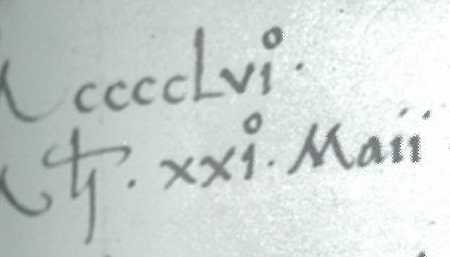 ccccLviº.
. xxiº. Maii